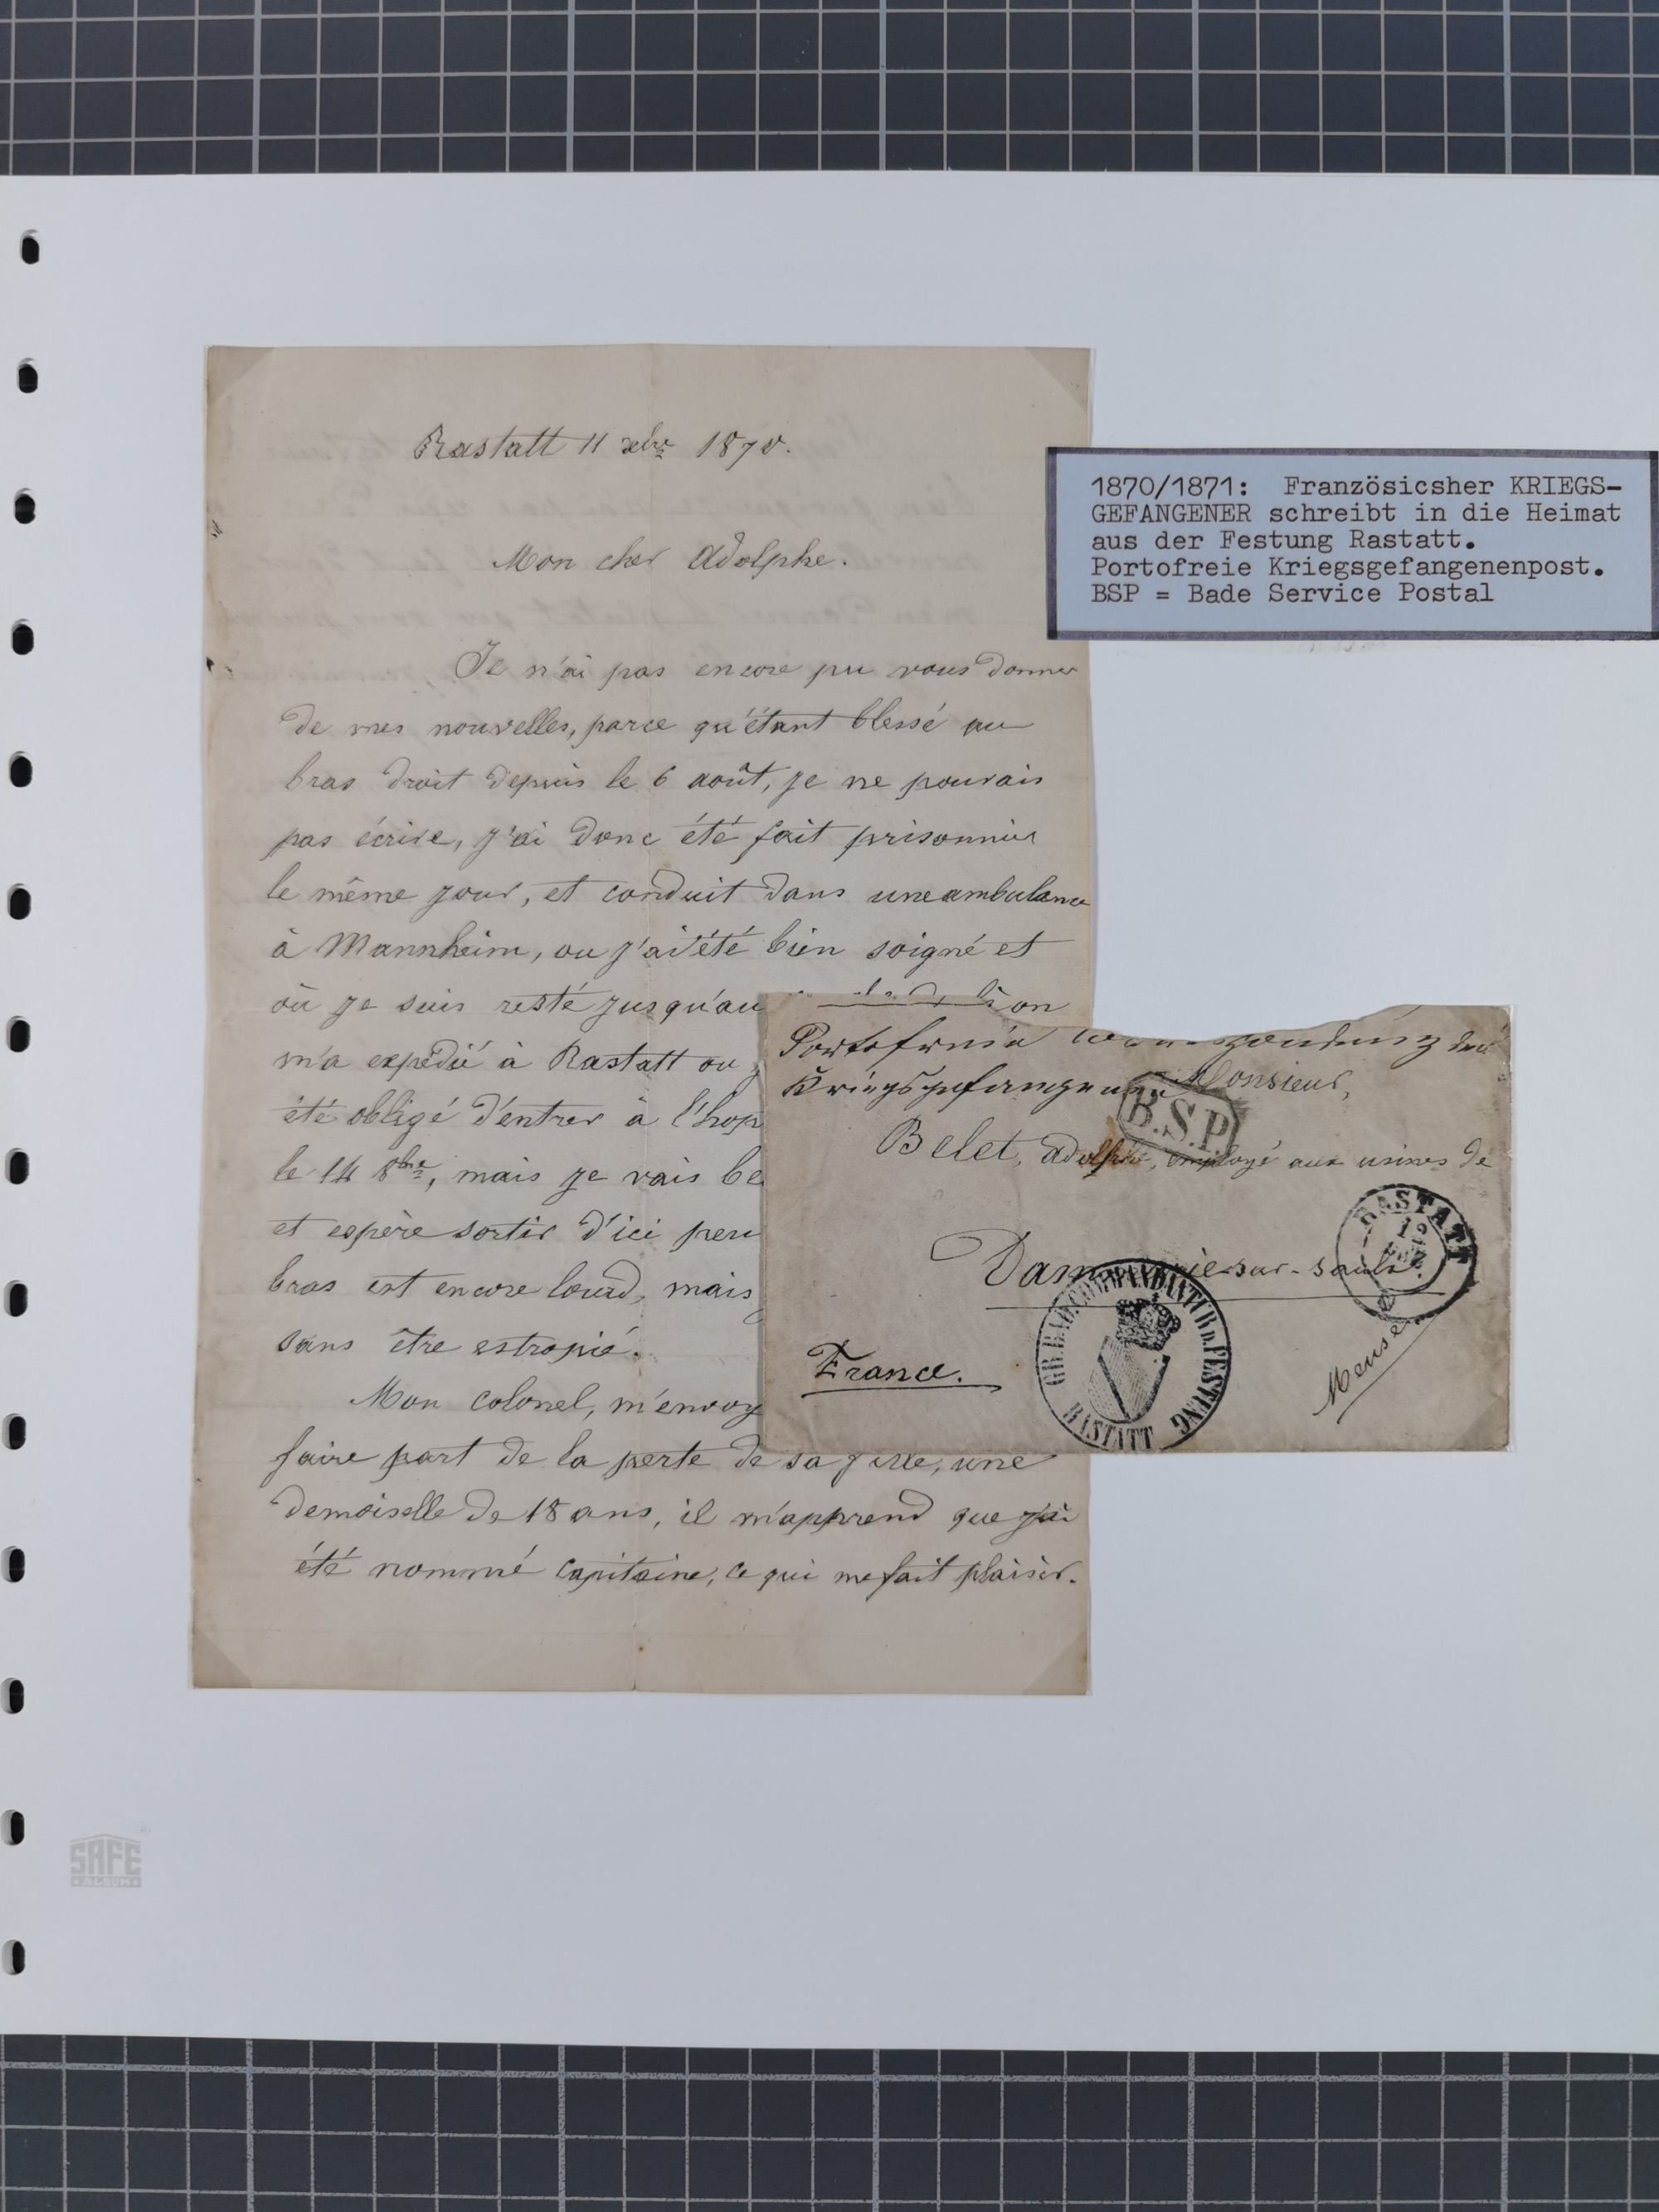 Rastatt 11 xbre 1870.
Mon cher Adolphe.
Je n'ai pas encore pu vous donner
de mes nouvelles, parce qu'étant blessé au
bras droit depuis le 6 août, je ne pouvais
pas écrire, j'ai donc été fait prisonnier
le même jour, et conduit dans une ambulance
à Mannheim, ou j'ai été bien soigné et
où je suis resté jusqu'au on
m'a expédié à Rastatt ou
été obligé d'entrer à l'hop
le 14 8bre, mais je vais be
et espère sortir d'ici peu
bras est encore lourd, mais
sans être estropié.
Mon colonel, m'envoy
faire part de la perte de sa fille, une
demoiselle de 18 ans, il m'apprend que j'ai
été nommé capitaine, ce qui me fait plaisir.
1870/1871: Französicsher KRIEGS-
GEFANGENER schreibt in die Heimat
aus der Festung Rastatt.
Portofreie Kriegsgefangenenpost.
BSP = Bade Service Postal
Portofreie
Kriegsgefangenen Monsieur,
B.S.P
Belet, Adolphe, employé aux usines de
Dammarie-sur-saulx.
RASTATT
12
Meuse
France.
GR. BAD. COMMANDANTUR D. FESTUNG
RASTATT
SAFE
ALBUM